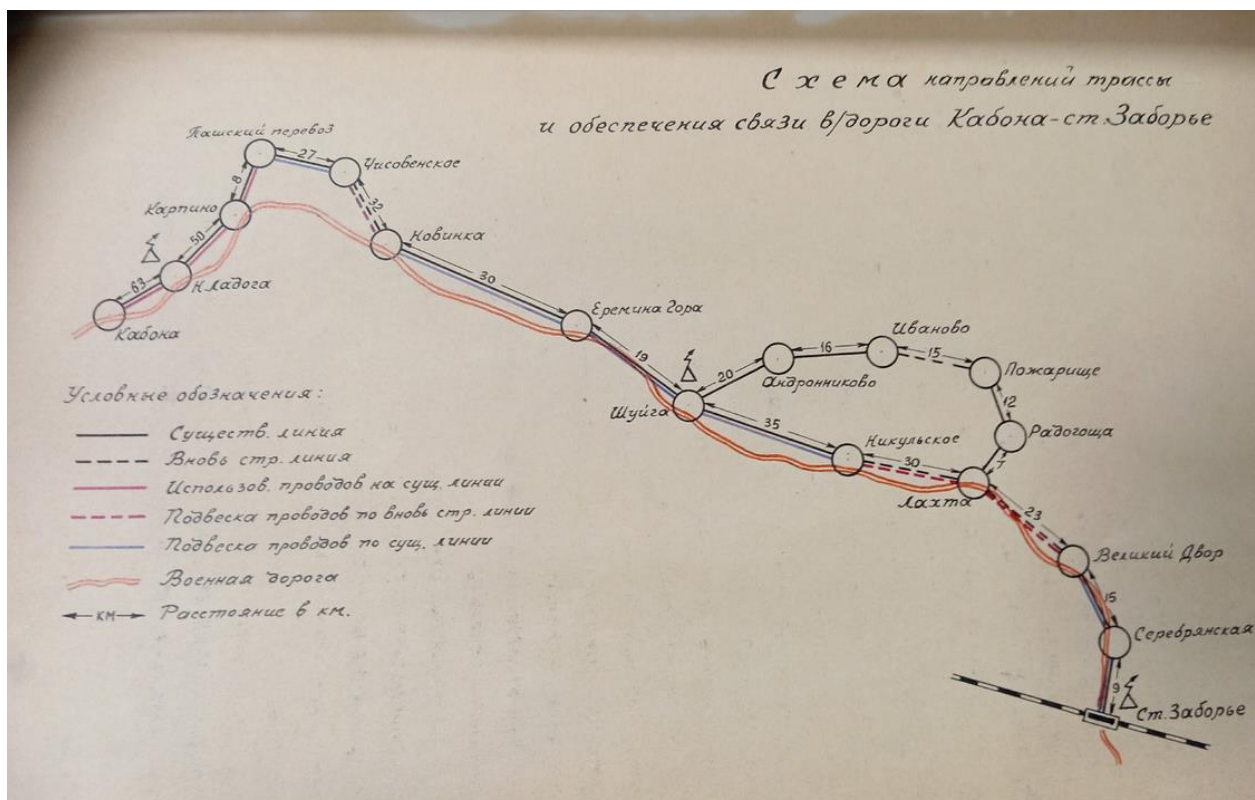 Схема направлений трассы
и обеспечения связи в/дороги Кабона-ст.Заборье
Пашский перевоз
27
Чисовенское
8
32
Карпино
Новинка
50
30
63
Н.Ладога
Кабона
Еремина Гора
19
Иваново
16
15
20
Пожарище
Андронниково
12
Шуйга
35
Никульское
Радогоща
30
7
Лахта
23
Великий Двор
15
Серебрянская
9
Ст.Заборье
Условные обозначения:
Существ. линия
Вновь стр. линия
Использов. проводов на сущ. линии
Подвеска проводов по вновь стр. линии
Подвеска проводов по сущ. линии
Военная дорога
КМ Расстояние в км.